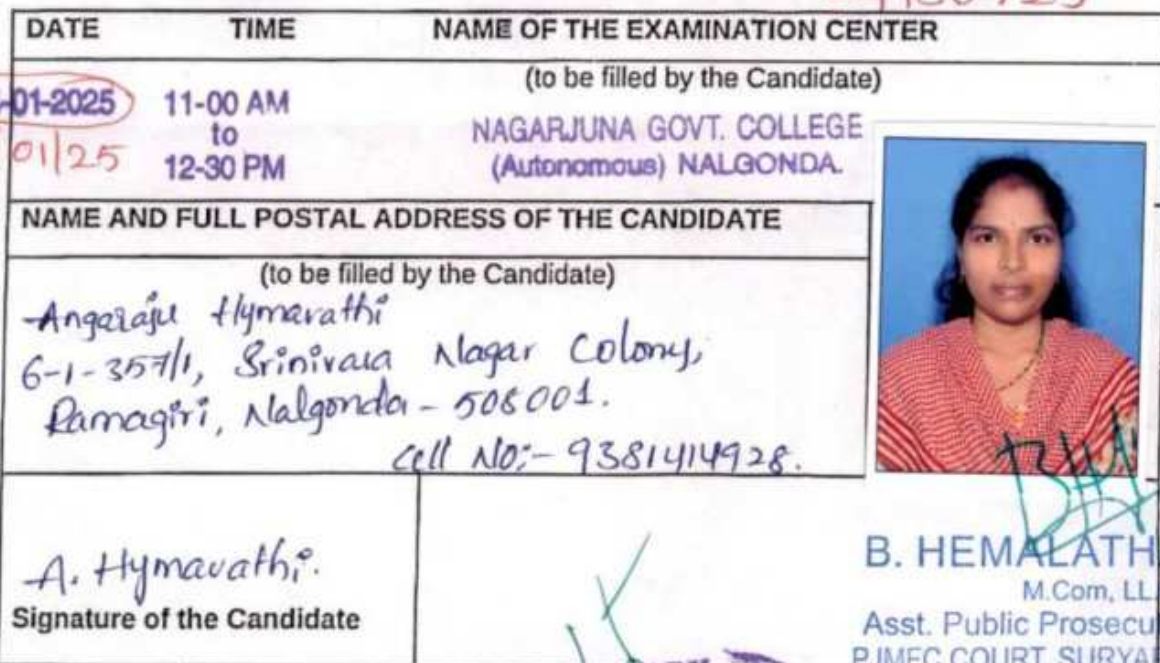 DATE TIME NAME OF THE EXAMINATION CENTER
(to be filled by the Candidate)
-01-2025 11-00 AM
to
12-30 PM
01/25
NAGARJUNA GOVT. COLLEGE
(Autonomous) NALGONDA.
NAME AND FULL POSTAL ADDRESS OF THE CANDIDATE
(to be filled by the Candidate)
Angaraju Hymavathi
6-1-357/1, Srinivasa Nagar Colony,
Ramagiri, Nalgonda - 508001.
Cell NO:- 9381414928.
A. Hymavathi.
Signature of the Candidate
B. HEMALATH
M.Com, LL.
Asst. Public Prosecu
PJMFC COURT, SURYA